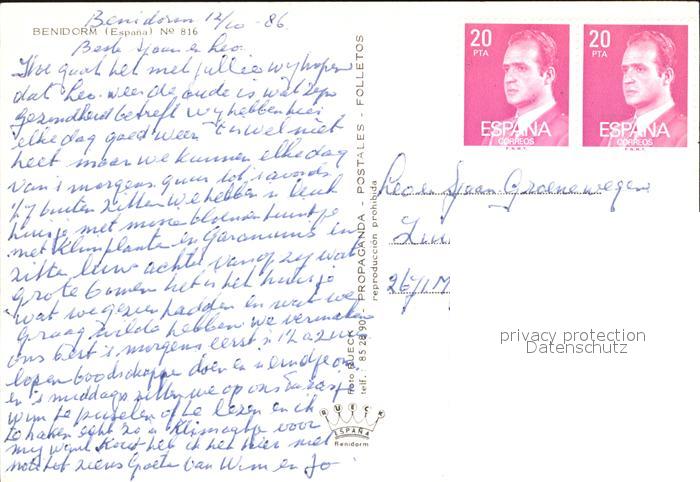 Benidorm 12/10-86
BENIDORM (España) Nº 816
Beste Sjaan en Leo.
Hoe gaat het met jullie wij hopen
dat Leo weer de oude is wat zijn
gezondheid betreft wij hebben hier
elke dag goed weer 't is wel niet
heet maar we kunnen elke dag
van 's morgens tot 's avonds
buiten zitten we hebben 'n leuk
huisje met bloemen tuintje
met Klimplanten en Garaniums en
zitten achter van op zij wat
grote bomen het is het huisje
wat we gezien hadden en wat we
graag wilde hebben we vermaken
ons best 's morgens eerst
lopen boodschappen doen en
en 's middags zitten we op ons
Wim te puzelen of te lezen en ik
te haken echt zo'n Klimaatje voor
mij want Kou heb ik het hier niet
tot ziens Groeten van Wim en Jo
Foto RUECK telf.: 85 28 90 PROPAGANDA - POSTALES - FOLLETOS
reproducción prohibida
RUECK
ESPAÑA
Benidorm
20
PTA
ESPAÑA
CORREOS
F.N.M.T.
20
PTA
ESPAÑA
CORREOS
F.N.M.T.
Leo en Sjaan Groenewegen
2671 M
privacy protection
Datenschutz